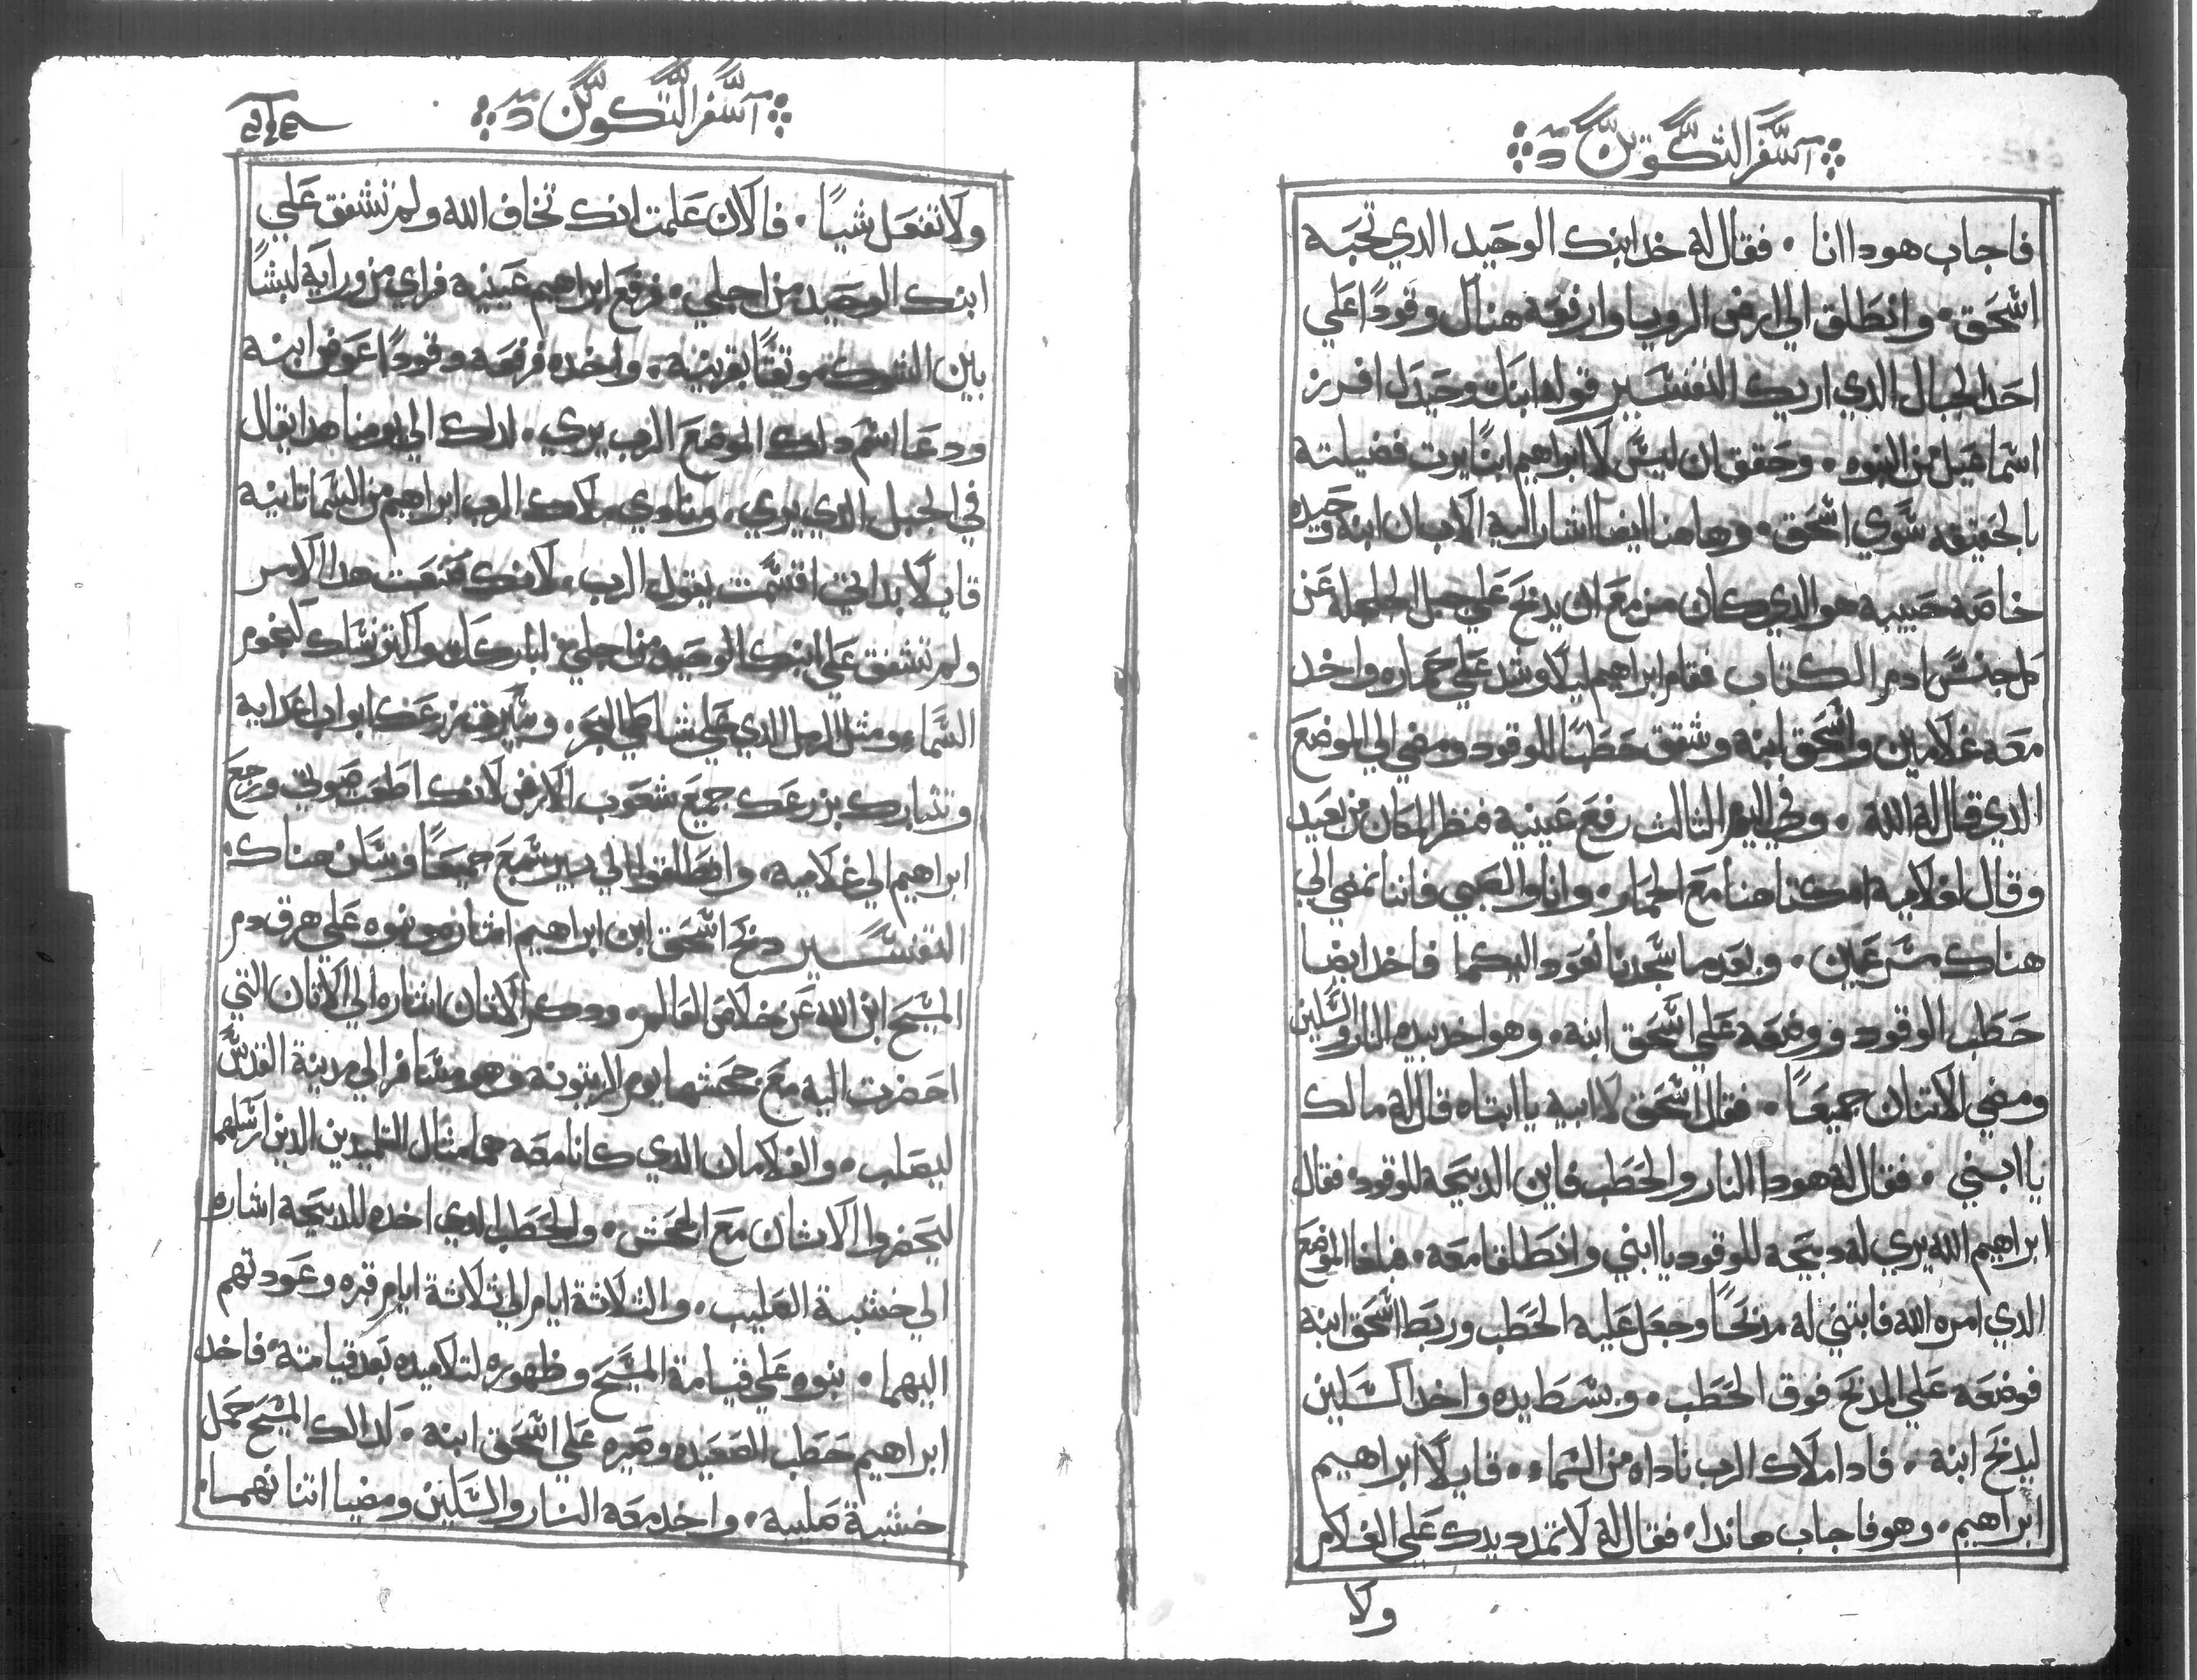 سفر التكوين
فاجاب هودا انا . فقال له خد ابنك الوحيد الدي تحبه
اسحق . وانطلق الي ارض الرويا وارفعه هناك وقودًا علي
احد الجبال الدي اريك التفسير قوله ابنك وحيدك افرز
اسماعيل من البنوه . وحقق ان ليس لابراهيم ابنًا يرت فضيلته
بالحقيقه سوي اسحق . وهاهنا ايضا اشار اليه الاب ان ابنه وحيده
خاصه حبيبه هو الدي كان مزمع ان يدبح علي جبل الجلجله عن
كل جنس ادم الكتاب فقام ابراهيم ليلا وشد علي حماره واخد
معه غلامين واسحق ابنه وشقق حطبًا للوقود ومضي الي الموضع
الدي قال له الله . وفي اليوم الثالث رفع عينيه فنظر المكان من بعيد
وقال لغلاميه امكتا هنا مع الحمار . وانا والصبي فاننا نمضي الي
هناك مسرعين . وبعدما سجدنا نعود اليكما فاخد ايضا
حطب الوقود ووضعه علي اسحق ابنه . وهو اخد بيده النار والسكين
ومضي الاتنان جميعًا . فقال اسحق لابيه يا ابتاه قال له مالك
يا ابني . فقال له هودا النار والحطب فاين الدبيحه للوقود فقال
ابراهيم الله يري له دبيحه للوقود يا ابني وانطلقا معه . فبلغا الموضع
الدي امره الله فابتني له مدبحًا وجعل عليه الحطب وربط اسحق ابنه
فوضعه علي المدبح فوق الحطب . وبسط يده واخد السكين
ليدبح ابنه . فادا ملاك الرب ناداه من السماء . قايلًا ابراهيم
ابراهيم . وهو فاجاب هاندا . فقال له لا تمدد يدك علي الغلام
ولا
سفر التكوين
ولا تفعل شيًا . فالان علمت انك تخاف الله ولم تشفق علي
ابنك الوحيد من اجلي . فرفع ابراهيم عينيه فراي من ورايه كبشًا
بين الشوك موتقًا بقرنيه . واخده فرفعه وقودًا عوض ابنه
ودعا اسم دلك الموضع الرب يري . لدلك الي يومنا هدا يقال
في الجبل الدي يري . ونادي ملاك الرب ابراهيم من السما تانيه
قايلا بداتي اقسمت يقول الرب . لانك صنعت هدا الامر
ولم تشفق علي ابنك الوحيد من اجلي اباركك واكتر نسلك كنجوم
السماء ومثل الرمل الدي علي شاطي البحر . وسيرت زرعك ابواب اعدايه
وتتبارك بزرعك جميع شعوب الارض لانك اطعت صوتي ورجع
ابراهيم الي غلاميه . وانطلقوا الي بير سبع جميعًا وسكن هناك .
التفسير دبح اسحق ابن ابراهيم اشاره ونبوه علي هرق دم
المسيح ابن الله عن خلاص العالم . ودكر الاتان اشاره الي الاتان التي
احضرت اليه مع جحشها يوم الزيتونه وهو مسافر الي مدينة القدس
ليصلب . والغلامان الدي كانا معه هما مثال التلميدين الدين ارسلهم
ليحضروا الاتان مع الجحش . والحطب الدي اخده للدبيحه اشاره
الي خشبة الصليب . والتلاتة ايام الي تلاتة ايام قبره وعودتهم
اليهما . نبوه علي قيامة المسيح وظهوره لتلاميده بعد قيامته فاخد
ابراهيم حطب الصعيده وصيره علي اسحق ابنه . كدالك المسيح حمل
خشبة صليبه . واخد معه النار والسكين ومضيا اتنانهما